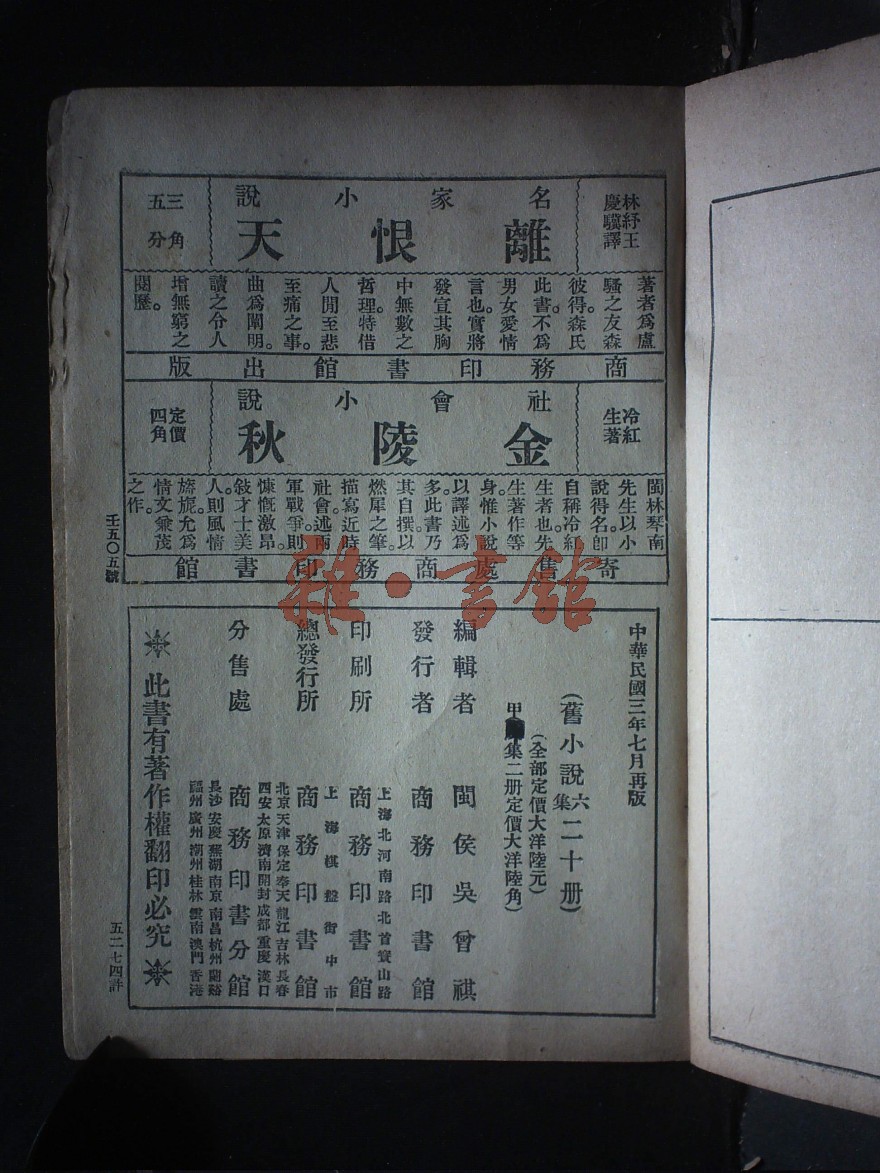 林紓王
慶驥譯
名家小說
離恨天
三角
五分
著者爲盧
騷之友森
彼得森氏
此書不爲
男女愛情
言也。實將
發宣其胸
中無數之
哲理。特借
人閒至悲
至痛之事。
曲爲闡明。
讀之令人
增無窮之
閱歷。
商務印書館出版
冷紅
生著
社會小說
金陵秋
定價
四角
閩林琴南
先生以小
說得名。卽
自稱冷紅
生者也。先
生著作等
身。惟小說
以譯述爲
多。此書乃
其自撰。以
燃犀之筆。
描寫近時
社會。述兩
軍戰爭。則
慷慨激昂。
敍才士美
人。則風情
旖旎。尤爲
情文兼茂
之作。
寄售處商務印書館
壬五〇五號
中華民國三年七月再版
(舊小說六集二十册)
(全部定價大洋陸元)
甲集二册定價大洋陸角)
編輯者 閩侯吳曾祺
發行者 商務印書館
上海北河南路北首寶山路
印刷所 商務印書館
上海棋盤街中市
總發行所 商務印書館
北京天津保定奉天龍江吉林長春
西安太原濟南開封成都重慶漢口
分售處 商務印書分館
長沙安慶蕪湖南京南昌杭州蘭谿
福州廣州潮州桂林雲南澳門香港
此書有著作權翻印必究
五二七四許
雜·書館